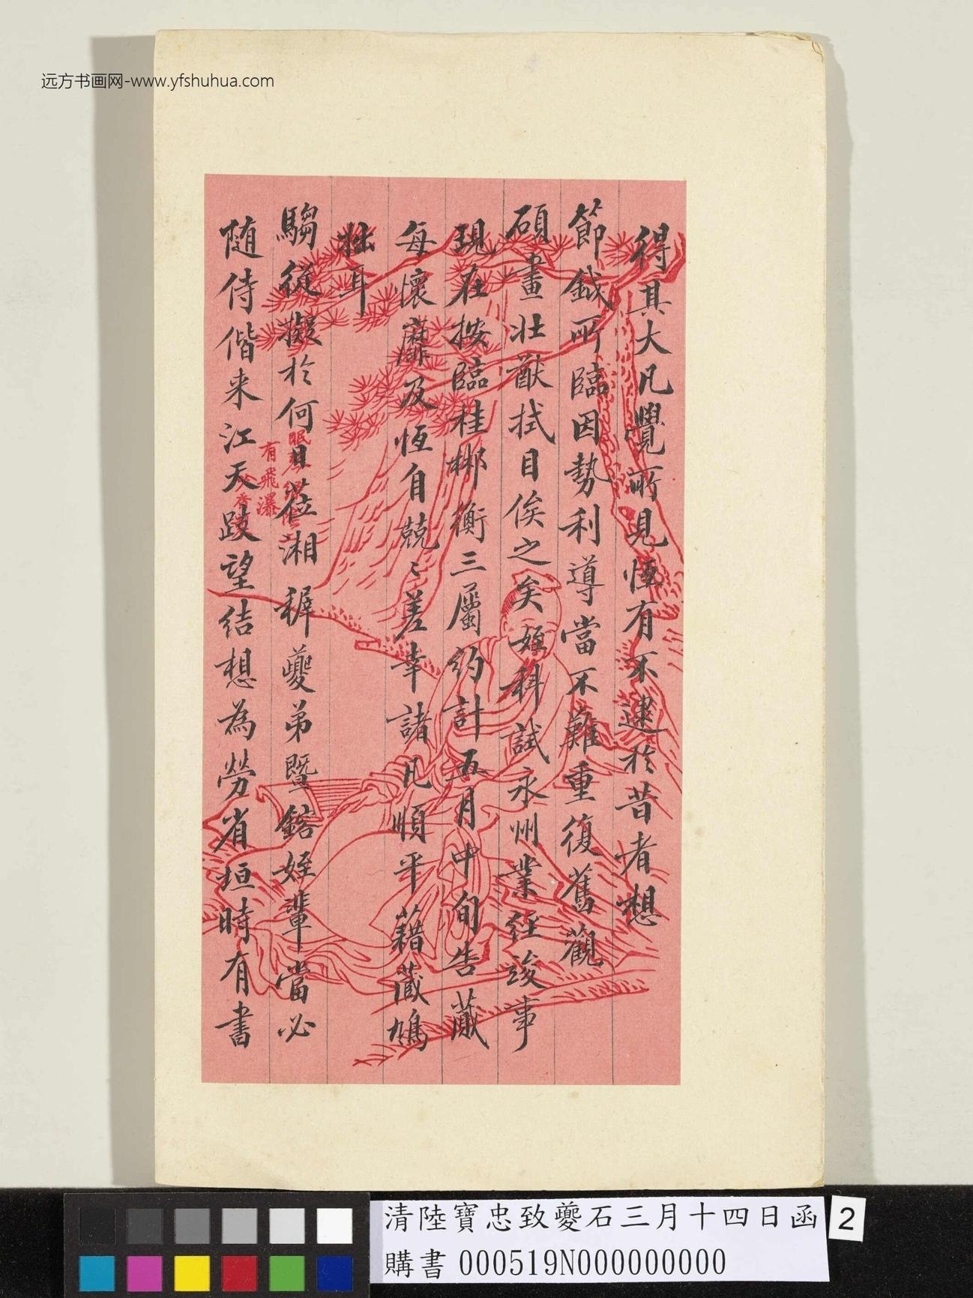 远方书画网-www.yfshuhua.com
得其大凡覺所見恆有不逮於昔者想
節鉞所臨因勢利導當不難重復舊觀
碩畫壯猷拭目俟之矣姪科試永州業經竣事
現在按臨桂郴衡三屬約計五月中旬告蕆
每懷靡及恆自兢〻差幸諸凡順平藉藏鳩
拙耳
騶從擬於何日蒞湘稺夔弟暨鎔姪輩當必
随侍偕来江天跂望結想為勞省垣時有書
有飛瀑
清陸寶忠致夔石三月十四日函
購書 000519N000000000
2